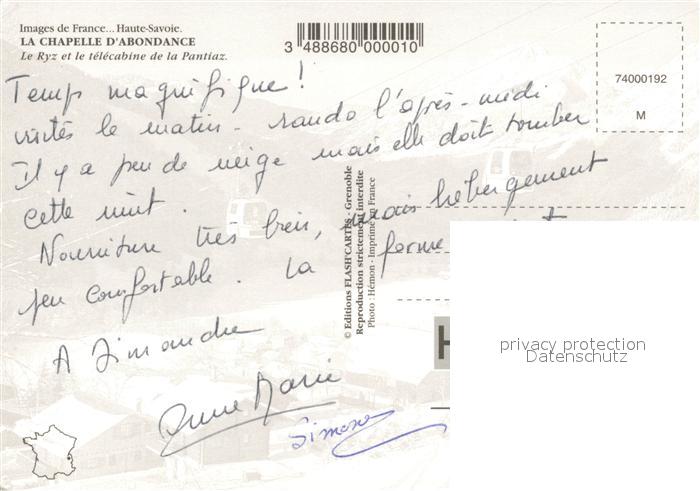 Images de France... Haute-Savoie.
LA CHAPELLE D'ABONDANCE
Le Ryz et le télécabine de la Pantiaz.
3 488680 000010
74000192
M
Temp magnifique !
visités le matin - rando l'après-midi
Il y a peu de neige mais elle doit tomber
cette nuit.
Nourriture très bien, mais hébergement
peu confortable. La forme
A Dimanche
Anne Marie
Simone
© Editions FLASH'CARTES - Grenoble
Reproduction strictement interdite
Photo : Hémon - Imprimé en France
H
privacy protection
Datenschutz